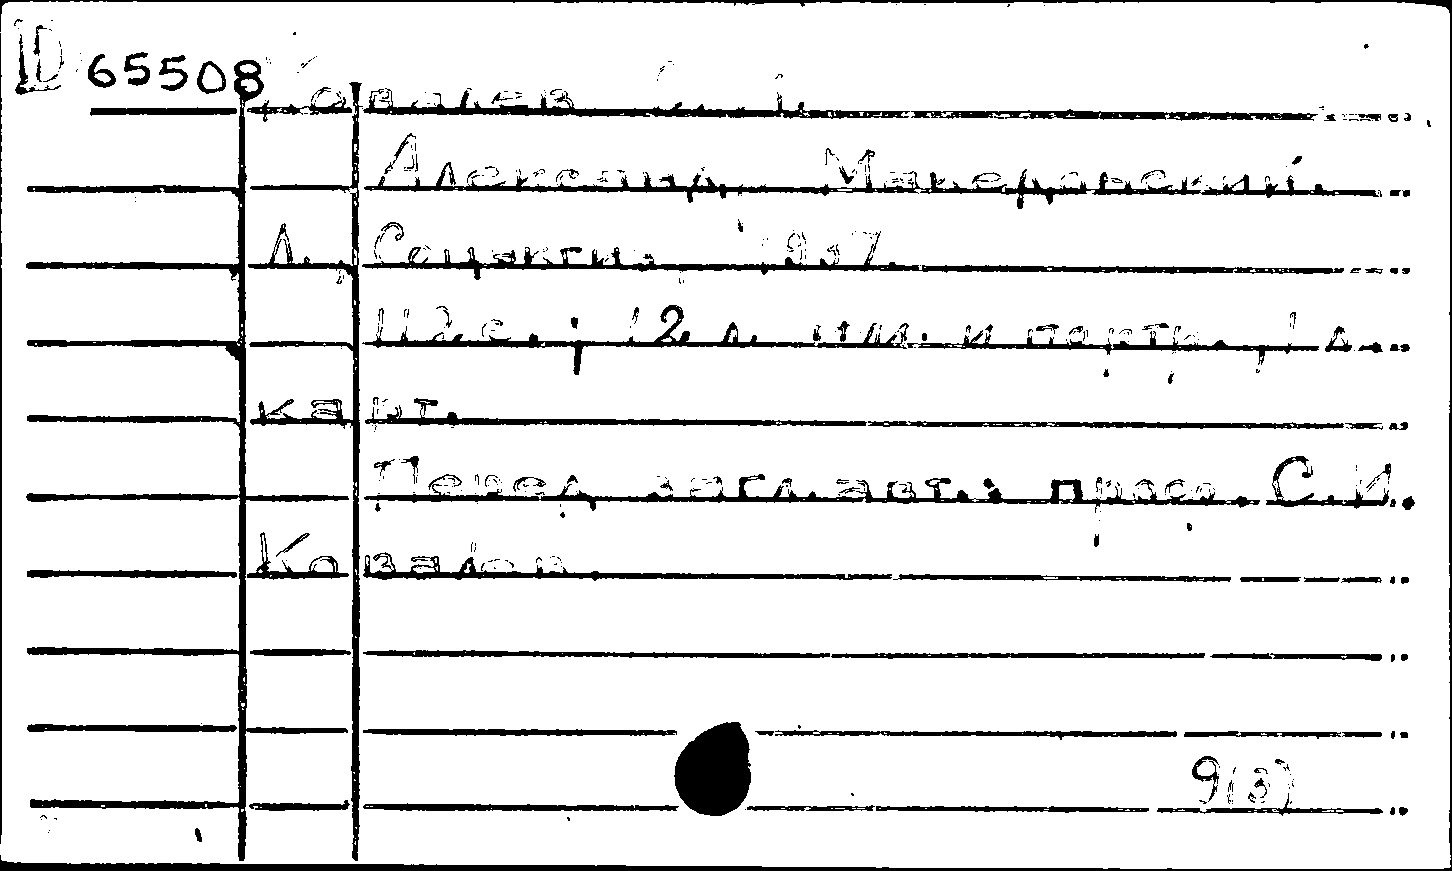 10 65508
Ковалев С. И.
Александр Македонский.
Л., Соцэкгиз, 1937.
112 с.; 12 л. илл. и портр., 1 л.
карт.
Перед загл. авт.: проф. С.И.
Ковалев.
9(3)